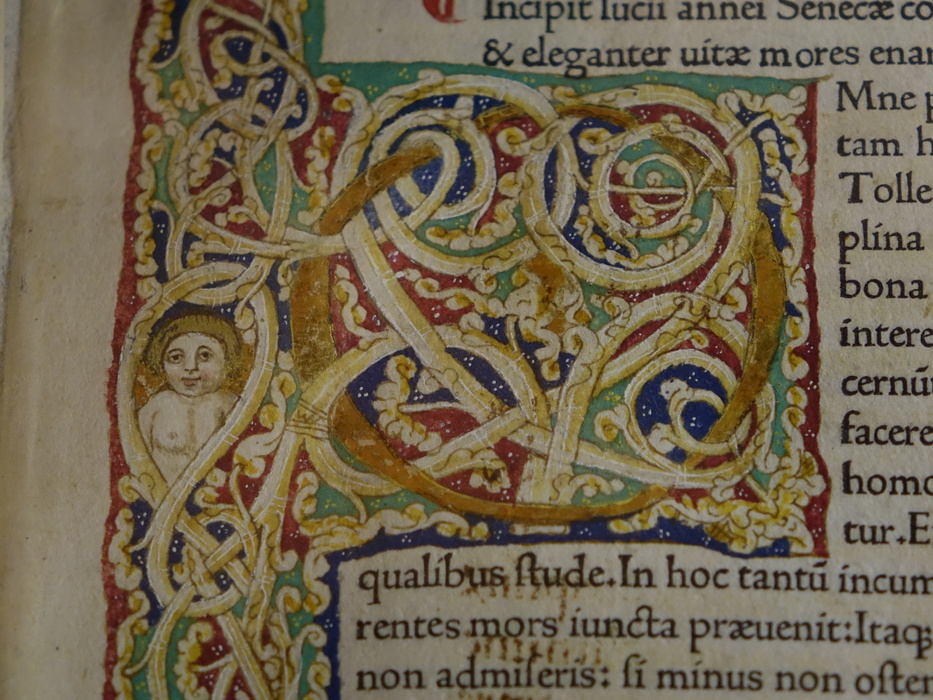 Incipit lucii annei Senecæ co
& eleganter uitæ mores enar
O
Mne p
tam h
Tolle
plina
bona
intere
cernūt
facere
homo
tur.E
qualibus ſtude.In hoc tantū incum
rentes mors iuncta præuenit:Itaqꝫ
non admiſeris: ſi minus non oſten